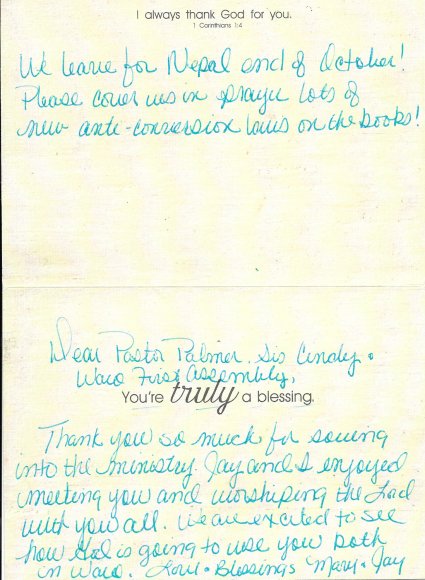 I always thank God for you.
1 Corinthians 1:4
We leave for Nepal end of October!
Please cover us in prayer lots of
new anti-conversion laws on the books!
Dear Pastor Palmer. Sis Cindy &
Waco First Assembly,
You're truly a blessing.
Thank you so much for sowing
into the ministry. Jay and I enjoyed
meeting you and worshiping the Lord
with you all. We are excited to see
how God is going to use you both
in Waco. Love & Blessings Mary & Jay